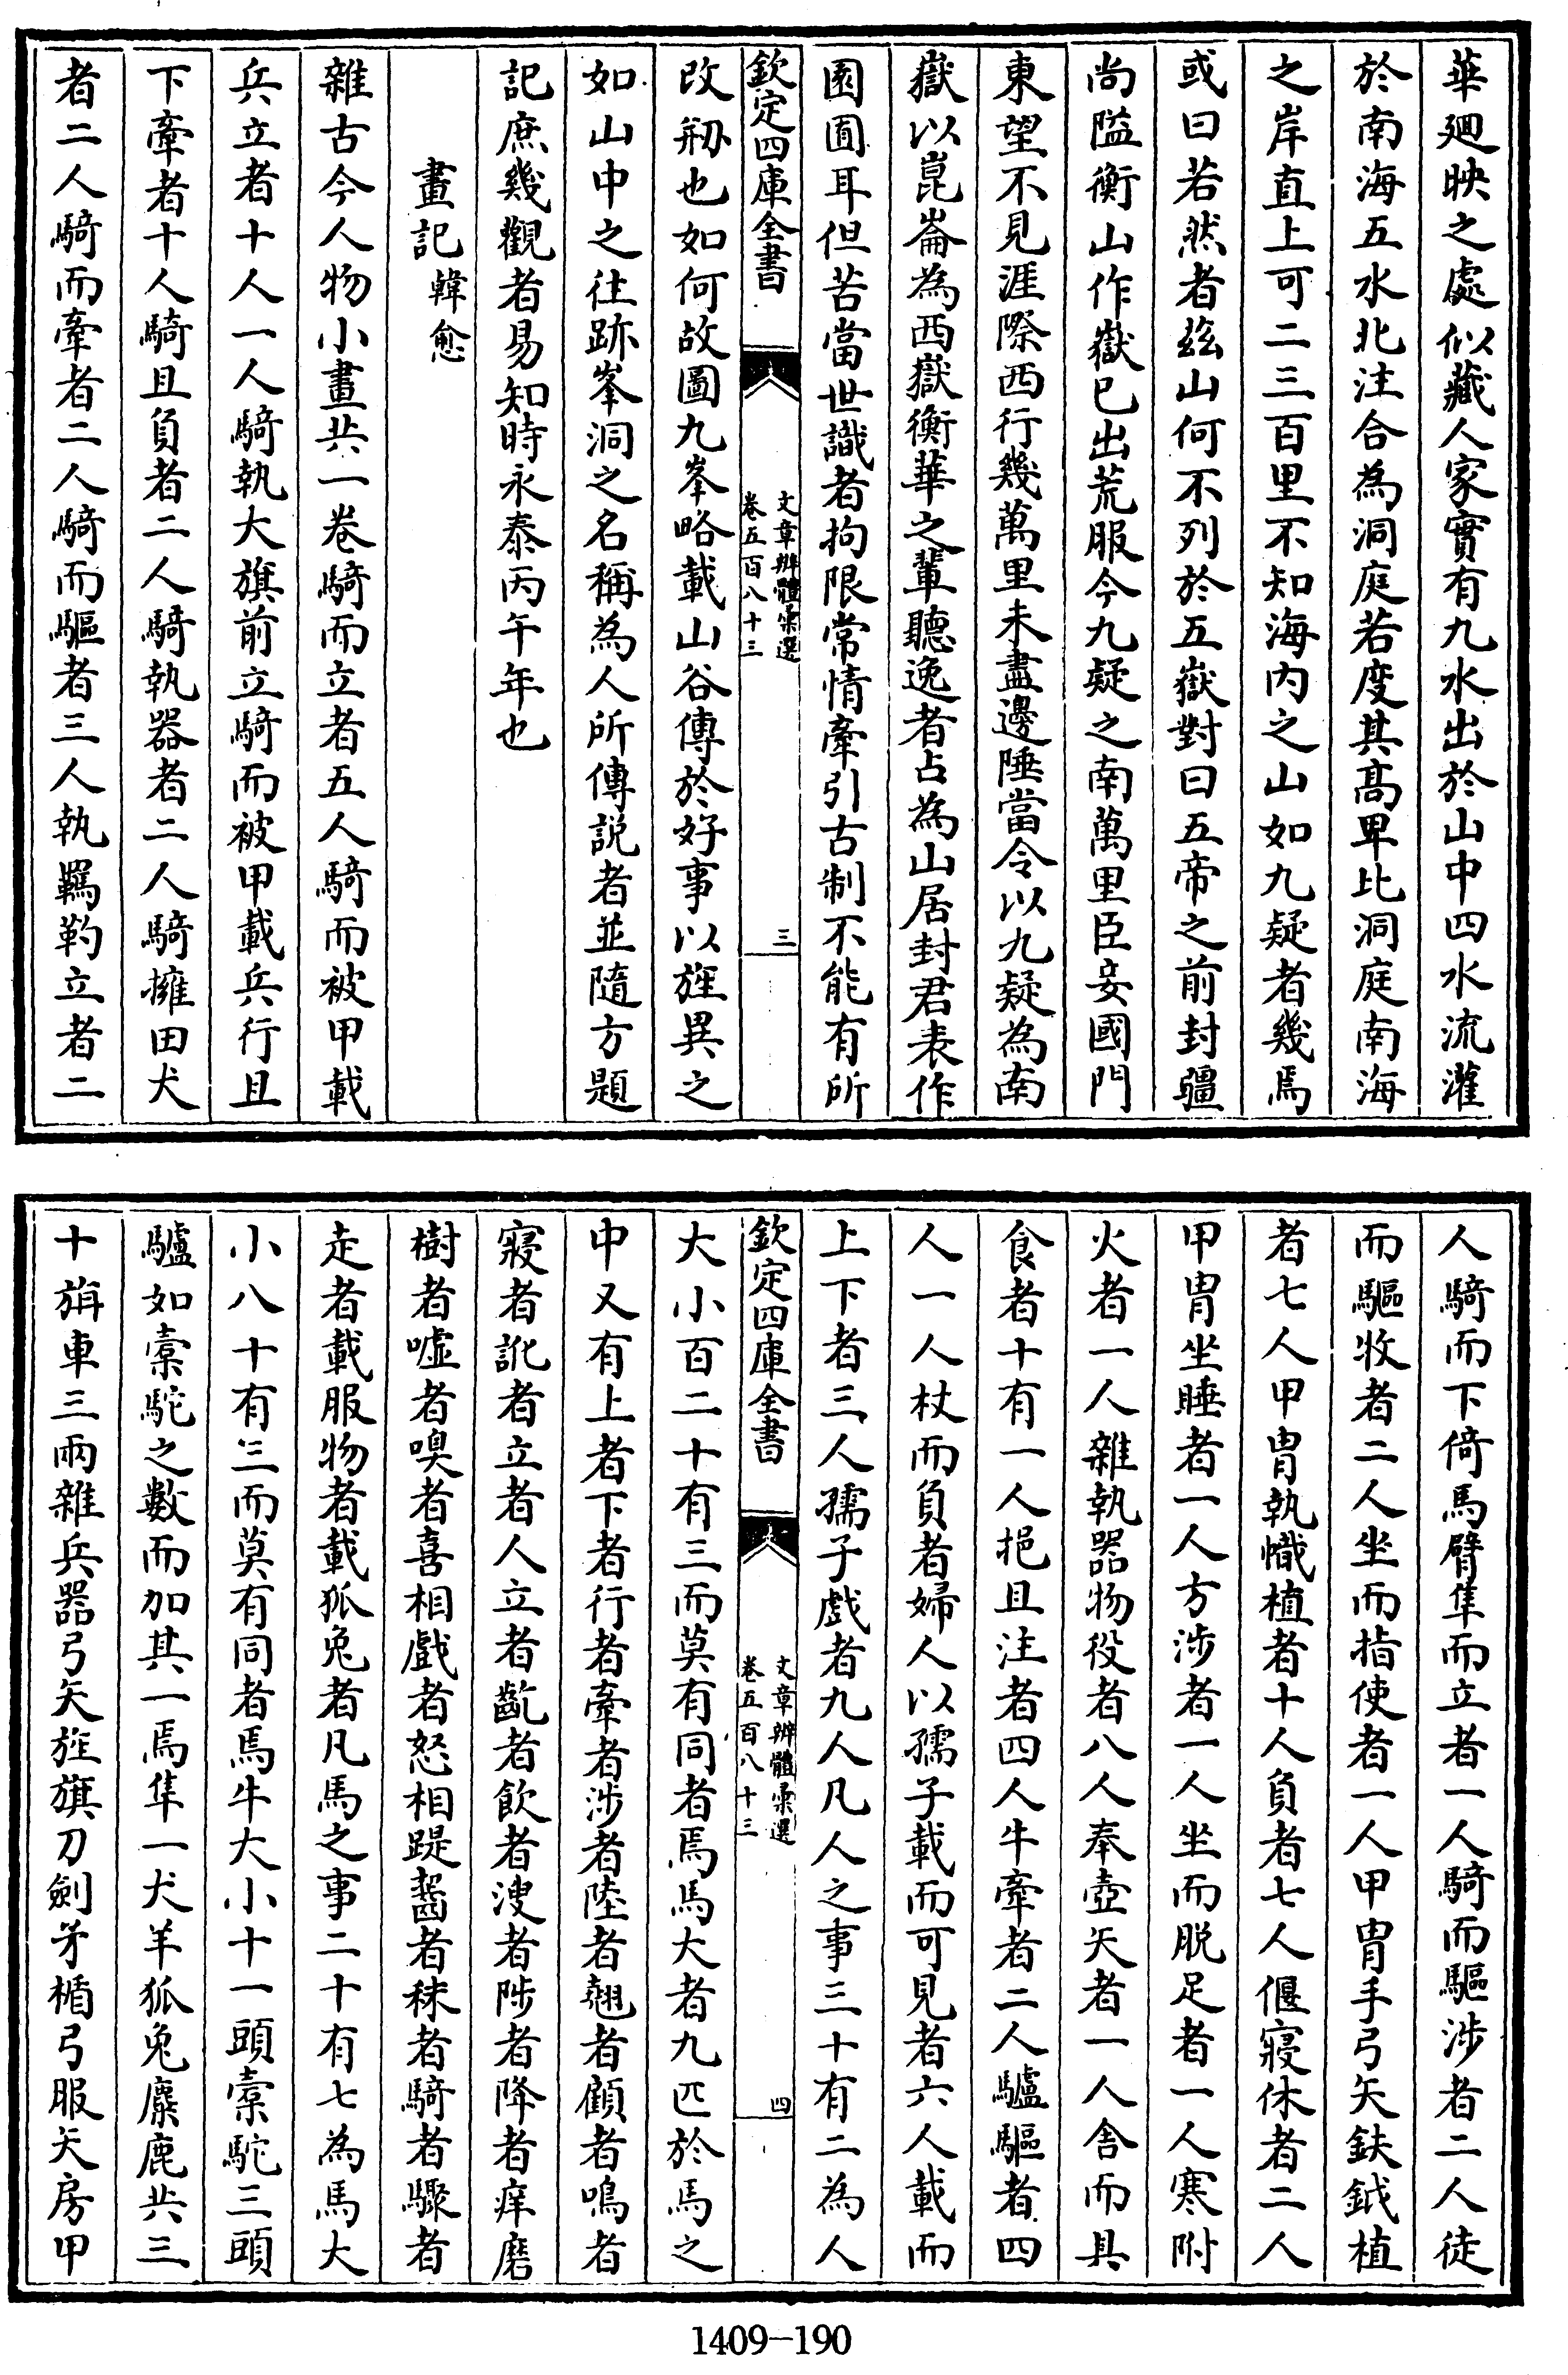 華廻映之處似藏人家實有九水出於山中四水流灌
於南海五水北注合為洞庭若度其髙卑比洞庭南海
之岸直上可二三百里不知海内之山如九疑者幾焉
或曰若然者兹山何不列於五嶽對曰五帝之前封疆
尚隘衡山作嶽已出荒服今九疑之南萬里臣妾國門
東望不見涯際西行幾萬里未盡邊陲當令以九疑為南
嶽以崑崙為西嶽衡華之輩聽逸者占為山居封君表作
園囿耳但苦當世識者拘限常情牽引古制不能有所
欽定四庫全書
文章辨體彙選
卷五百八十三
三
改刱也如何故圖九峯略載山谷傳於好事以旌異之
如山中之往跡峯洞之名稱為人所傳説者並隨方題
記庶幾觀者易知時永泰丙午年也
畫記 韓愈
雜古今人物小畫共一卷騎而立者五人騎而被甲載
兵立者十人一人騎執大旗前立騎而被甲載兵行且
下牽者十人騎且負者二人騎執器者二人騎擁田犬
者二人騎而牽者二人騎而驅者三人執羈靮立者二
人騎而下倚馬臂隼而立者一人騎而驅涉者二人徒
而驅牧者二人坐而指使者一人甲胄手弓矢鈇鉞植
者七人甲胄執幟植者十人負者七人偃寢休者二人
甲胄坐睡者一人方涉者一人坐而脱足者一人寒附
火者一人雜執器物役者八人奉壺矢者一人舍而具
食者十有一人挹且注者四人牛牽者二人驢驅者四
人一人杖而負者婦人以孺子載而可見者六人載而
上下者三人孺子戲者九人凡人之事三十有二為人
欽定四庫全書
文章辨體彙選
卷五百八十三
四
大小百二十有三而莫有同者焉馬大者九匹於馬之
中又有上者下者行者牽者涉者陸者翹者顧者鳴者
寢者訛者立者人立者齕者飲者溲者陟者降者痒磨
樹者嘘者嗅者喜相戲者怒相踶齧者秣者騎者驟者
走者載服物者載狐兔者凡馬之事二十有七為馬大
小八十有三而莫有同者焉牛大小十一頭橐駝三頭
驢如橐駝之數而加其一焉隼一犬羊狐兔麋鹿共三
十旃車三兩雜兵器弓矢旌旗刀劍矛楯弓服矢房甲
1409-190